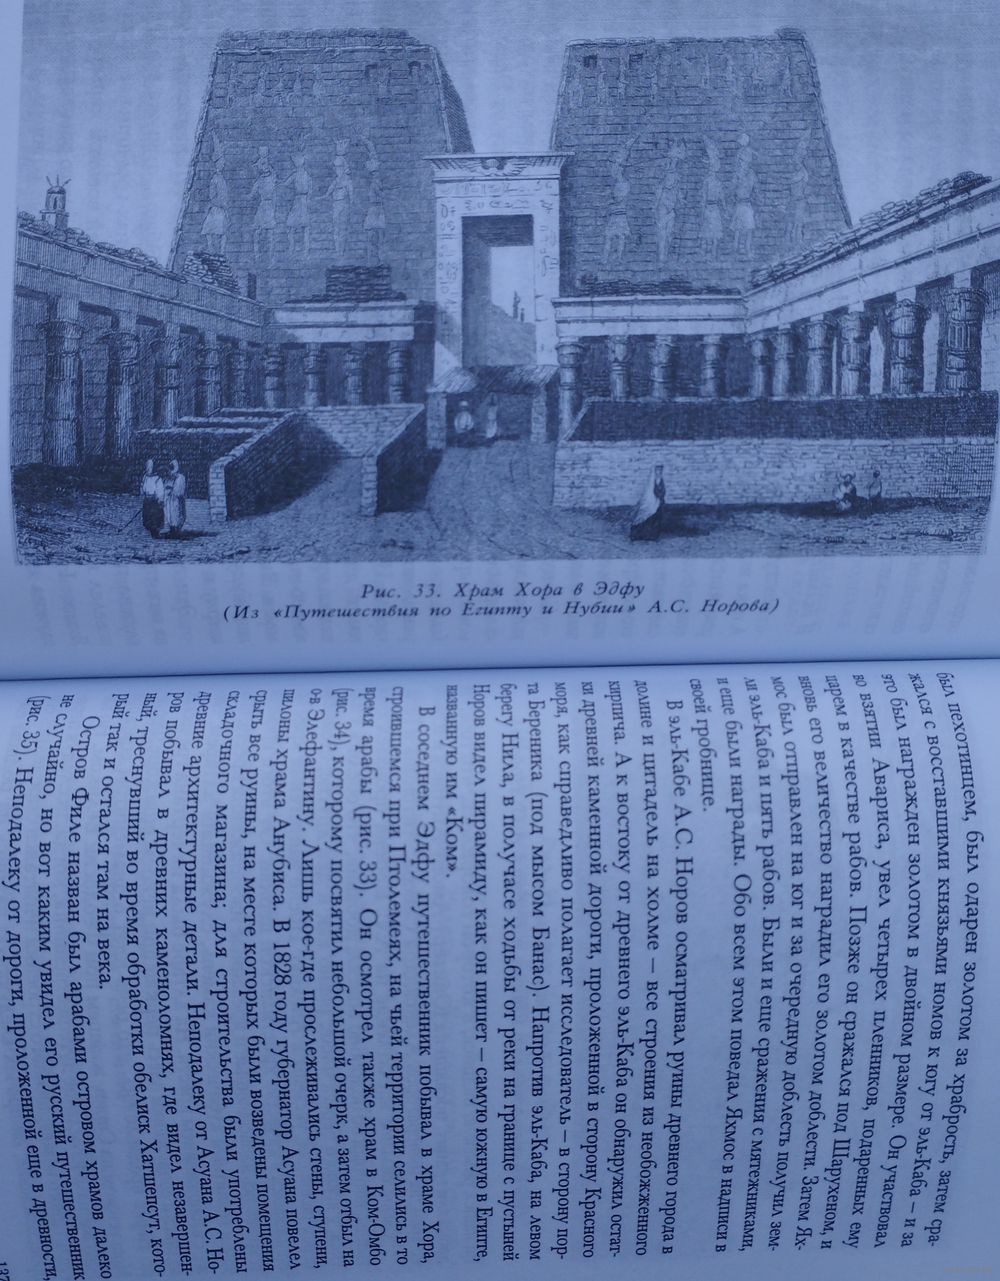 Рис. 33. Храм Хора в Эдфу
(Из «Путешествия по Египту и Нубии» А.С. Норова)
был пехотинцем, был одарен золотом за храбрость, затем сра-
жался с восставшими князьями номов к югу от эль-Каба – и за
это был награжден золотом в двойном размере. Он участвовал
во взятии Авариса, увел четырех пленников, подаренных ему
царем в качестве рабов. Позже он сражался под Шарухеном, и
вновь его величество наградил его золотом доблести. Затем Ях-
мос был отправлен на юг и за очередную доблесть получил зем-
ли эль-Каба и пять рабов. Были и еще сражения с мятежниками,
и еще были награды. Обо всем этом поведал Яхмос в надписи в
своей гробнице.
В эль-Кабе А.С. Норов осматривал руины древнего города в
долине и цитадель на холме – все строения из необожженного
кирпича. А к востоку от древнего эль-Каба он обнаружил остат-
ки древней каменной дороги, проложенной в сторону Красного
моря, как справедливо полагает исследователь – в сторону пор-
та Береника (под мысом Банас). Напротив эль-Каба, на левом
берегу Нила, в получасе ходьбы от реки на границе с пустыней
Норов видел пирамиду, как он пишет – самую южную в Египте,
названную им «Ком».
В соседнем Эдфу путешественник побывал в храме Хора,
строившемся при Птолемеях, на чьей территории селились в то
время арабы (рис. 33). Он осмотрел также храм в Ком-Омбо
(рис. 34), которому посвятил небольшой очерк, а затем отбыл на
о-в Элефантину. Лишь кое-где прослеживались стены, ступени,
пилоны храма Анубиса. В 1828 году губернатор Асуана повелел
срыть все руины, на месте которых были возведены помещения
складочного магазина; для строительства были употреблены
древние архитектурные детали. Неподалеку от Асуана А.С. Но-
ров побывал в древних каменоломнях, где видел незавершен-
ный, треснувший во время обработки обелиск Хатшепсут, кото-
рый так и остался там на века.
Остров Филе назван был арабами островом храмов далеко
не случайно, но вот каким увидел его русский путешественник
(рис. 35). Неподалеку от дороги, проложенной еще в древности,
137